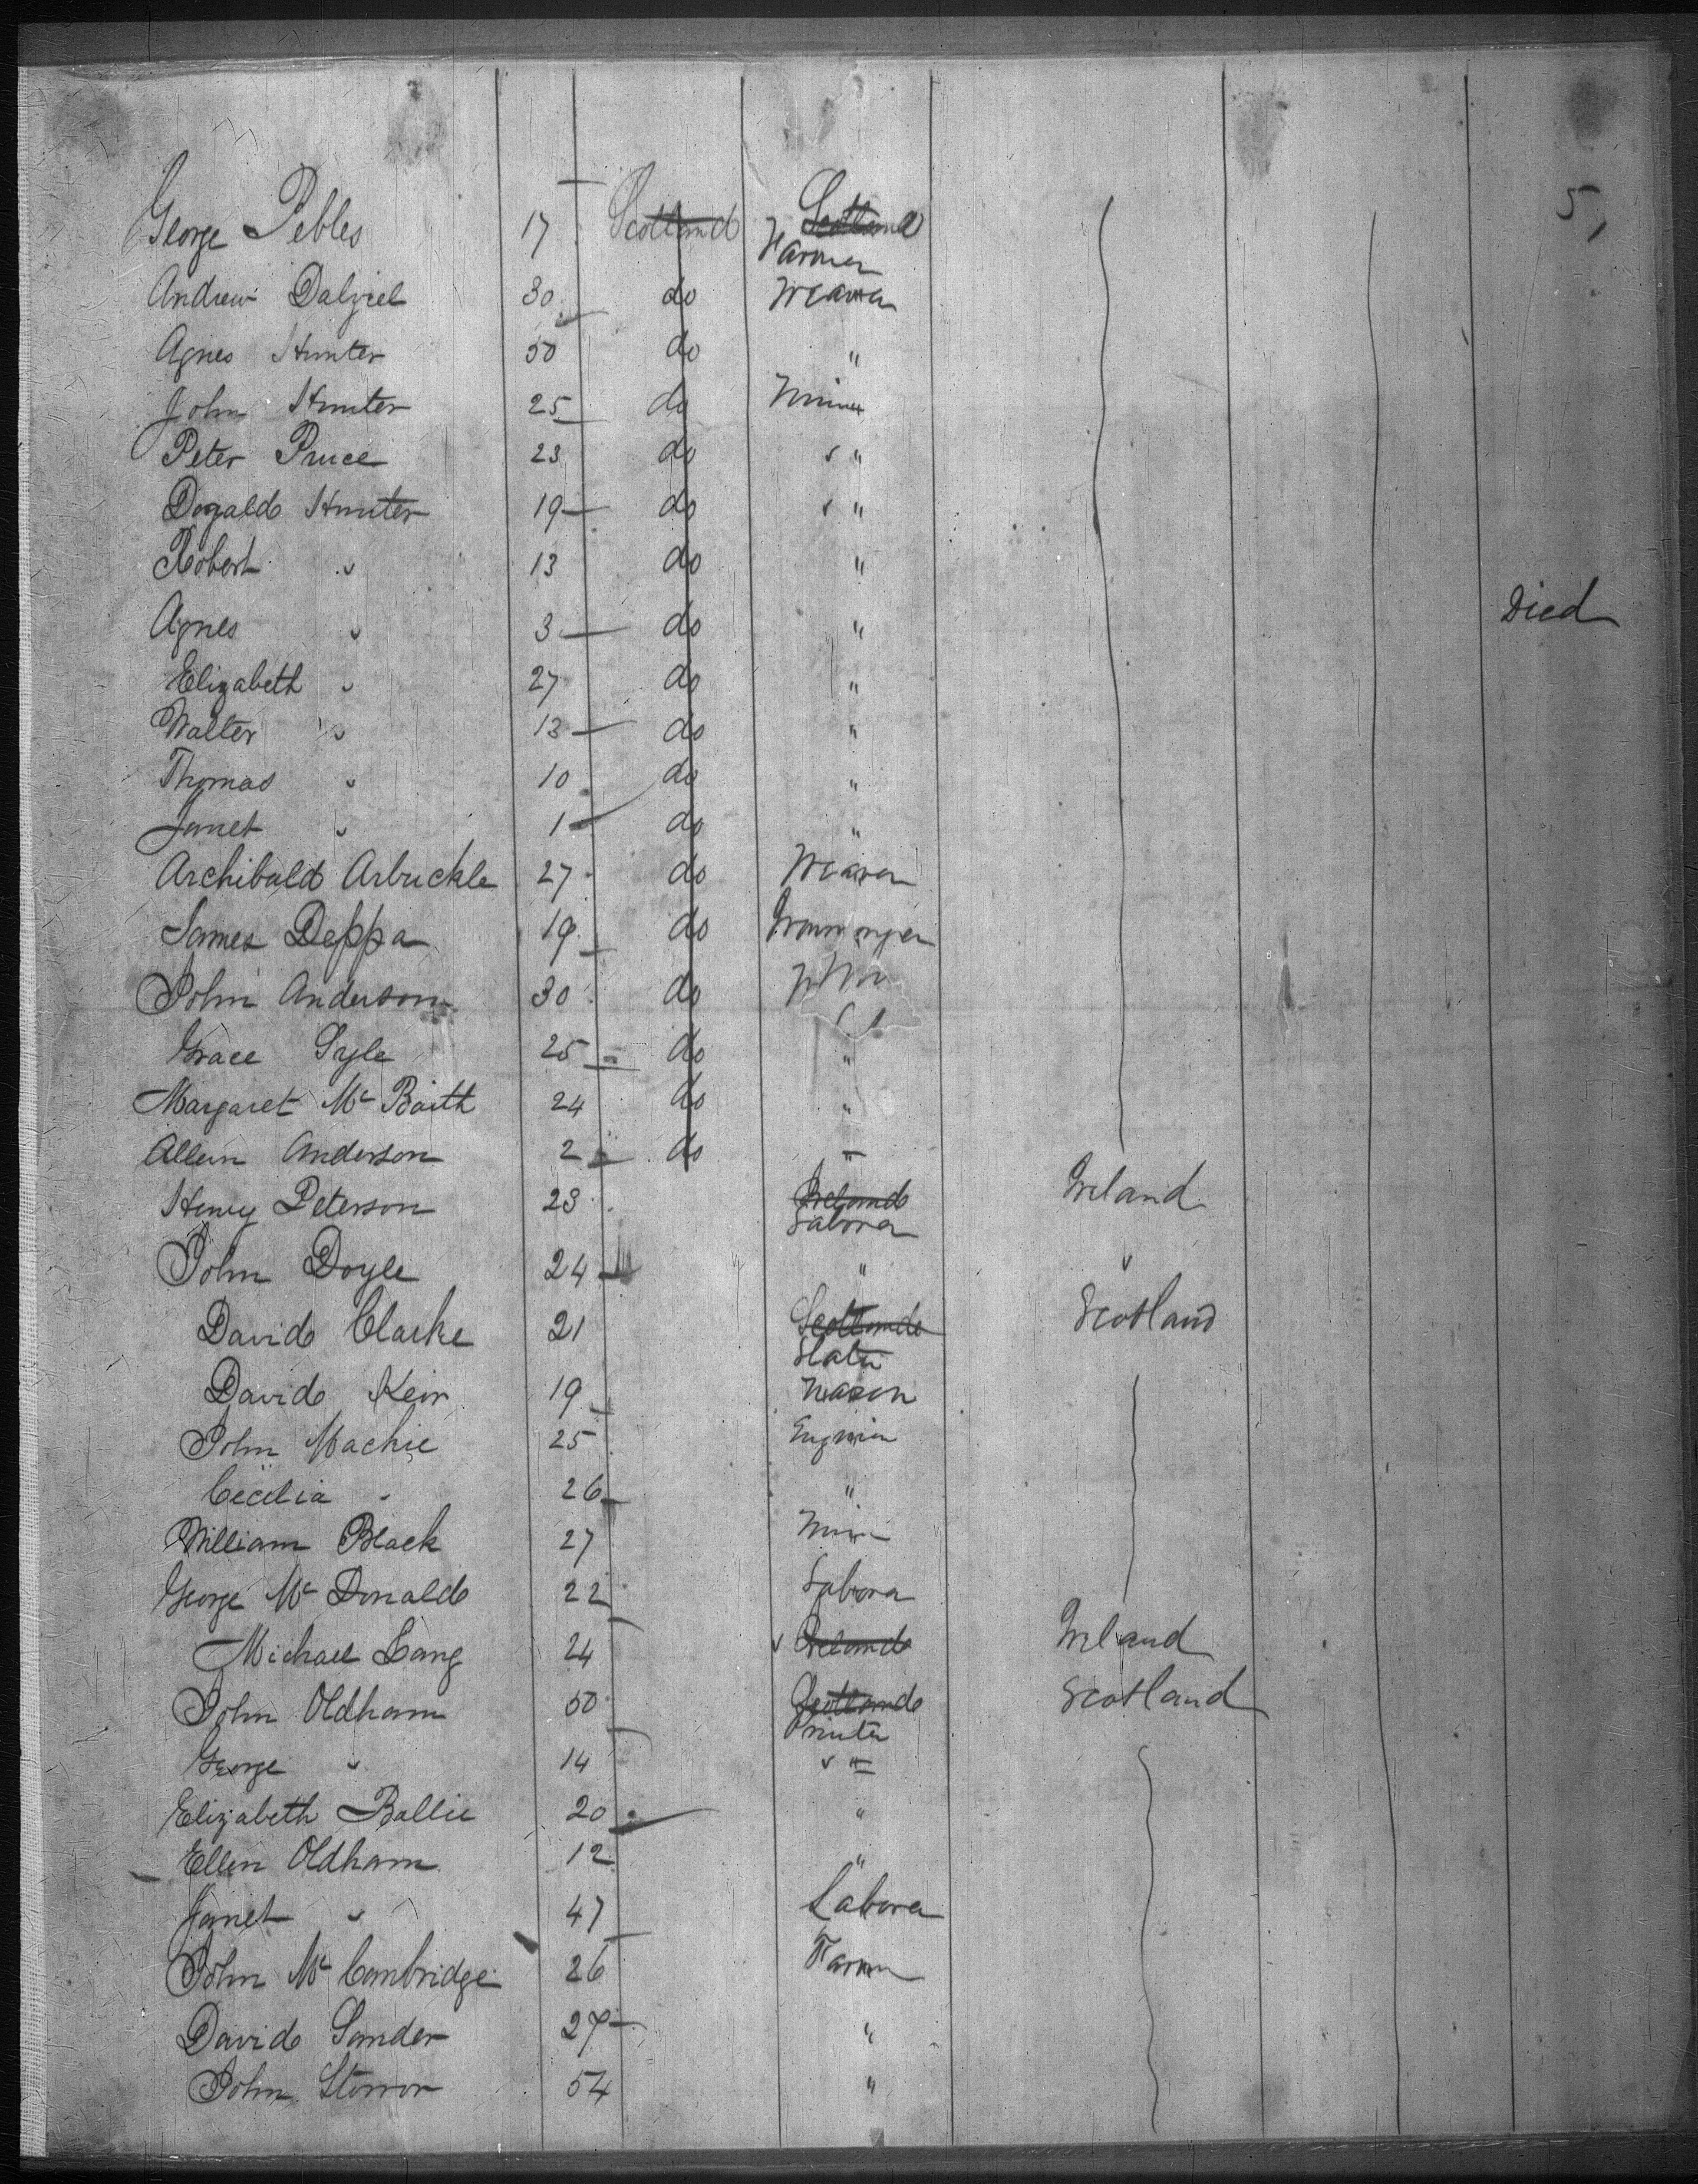 5,
George Pebles 17 Scotland Scotland
Farmer
Andrew Dalziel 30 do Weaver
Agnes Hunter 50 do "
John Hunter 25 do Miner
Peter Pruce 23 do "
Dogald Hunter 19 do "
Robert " 13 do "
Agnes " 3 do " Died
Elizabeth " 27 do "
Walter " 13 do "
Thomas " 10 do "
Janet " 1 do "
Archibald Arbuckle 27 do Weaver
James Deppa 19 do
John Anderson 30 do
Grace Syle 25 do "
Margaret Mc Baith 24 do "
Allen Anderson 2 do "
Henry Peterson 23 Ireland Ireland
Labora
John Doyle 24 " "
David Clarke 21 Scotland Scotland
Slater
David Keir 19 Mason
John Mackie 25 Engnin
Cecilia " 26 "
William Black 27 Min
George Mc Donald 22 Labora
Michael Lang 24 " Ireland Ireland
John Oldham 50 Scotland Scotland
Printer
George " 14 "
Elizabeth Ballie 20 "
Ellen Oldham 12 "
Janet " 47 Labora
John Mc Cambridge 26 Farm
David Sander 27 "
John Storror 54 "